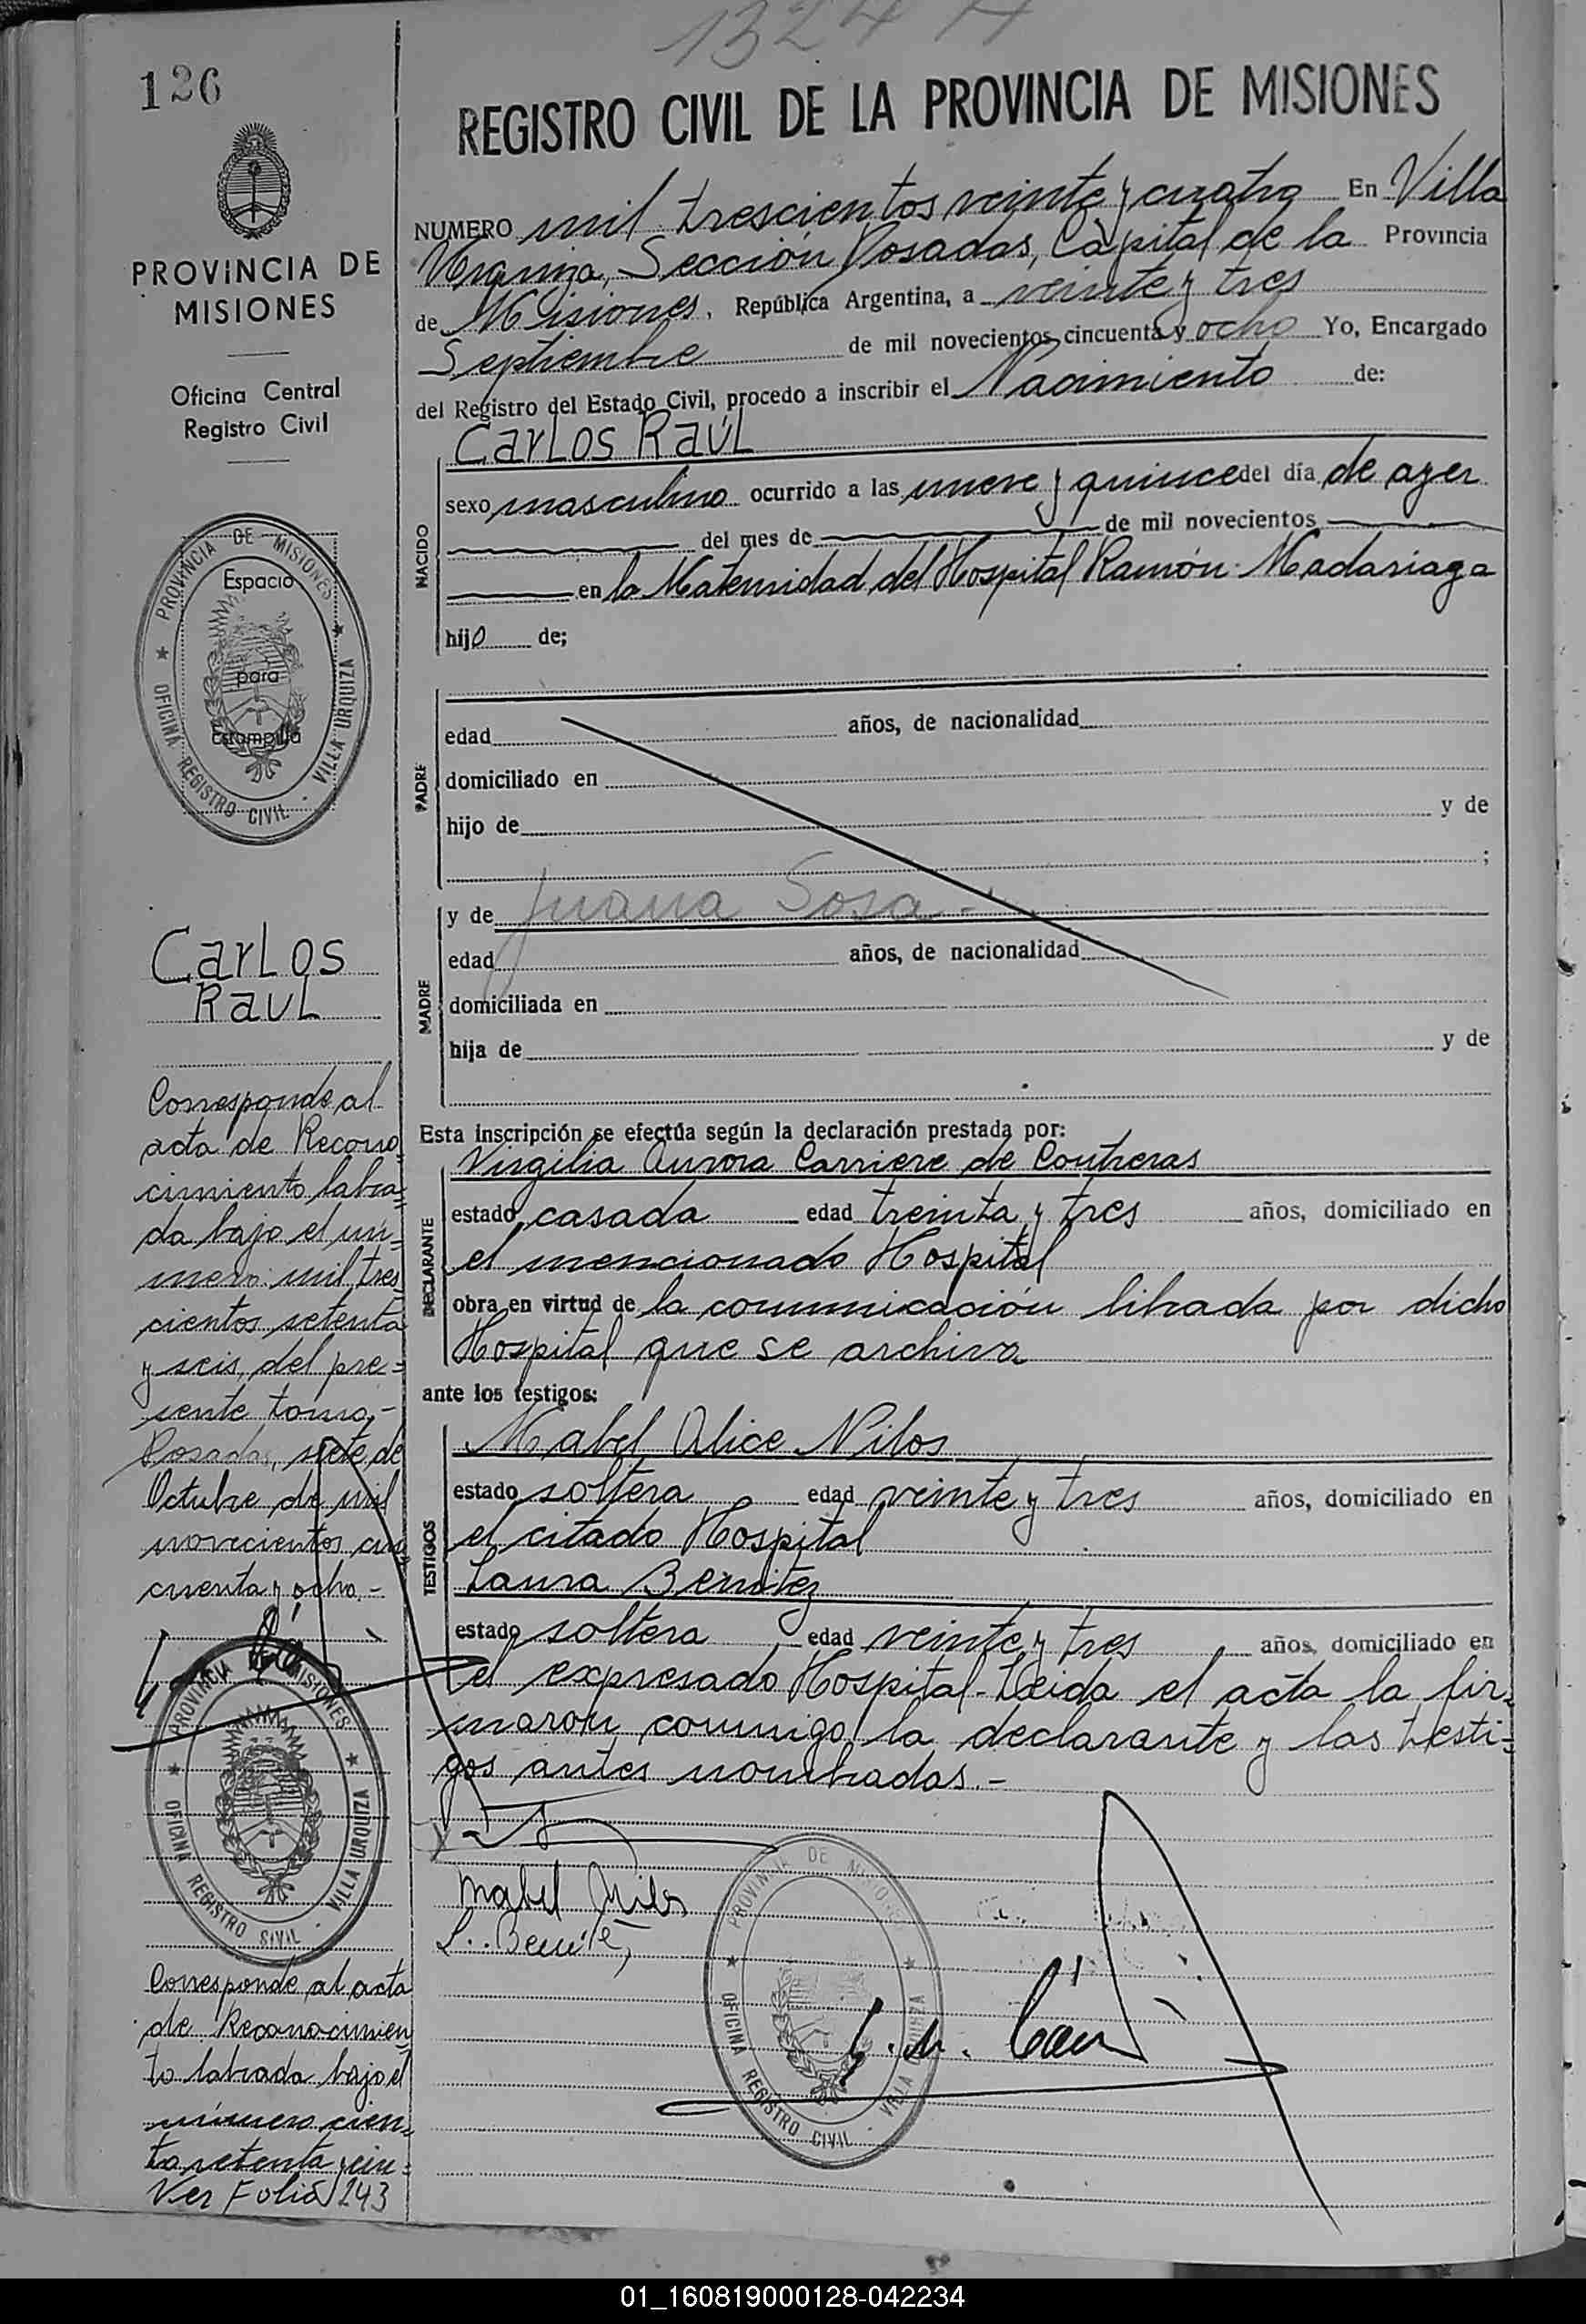 1324 A
126
REGISTRO CIVIL DE LA PROVINCIA DE MISIONES
PROVINCIA DE
MISIONES
Oficina Central
Registro Civil
NUMERO mil trescientos veinte y cuatro En Villa
Urquiza, Sección Posadas, Capital de la Provincia
de Misiones, República Argentina, a veinte y tres
Septiembre de mil novecientos cincuenta y ocho Yo, Encargado
del Registro del Estado Civil, procedo a inscribir el Nacimiento de:
NACIDO
Carlos Raúl
sexo masculino ocurrido a las nueve y quince del día de ayer
del mes de de mil novecientos
en la Maternidad del Hospital Ramón Madariaga
hijo de;
PADRE
edad años, de nacionalidad
domiciliado en
hijo de y de
;
MADRE
y de Juana Sosa -
edad años, de nacionalidad
domiciliada en
hija de y de
Esta inscripción se efectúa según la declaración prestada por:
DECLARANTE
Virgilia Aurora Carriere de Contreras
estado casada edad treinta y tres años, domiciliado en
el mencionado Hospital
obra en virtud de la comunicación librada por dicho
Hospital que se archiva
ante los testigos:
TESTIGOS
Mabel Alice Nilos
estado soltera edad veinte y tres años, domiciliado en
el citado Hospital
Laura Benitez
estado soltera edad veinte y tres años, domiciliado en
el expresado Hospital - Leida el acta la fir=
maron conmigo la declarante y las testi=
gos antes nombradas. -
Mabel Nilos
L. Benitez
PROVINCIA DE MISIONES
OFICINA REGISTRO CIVIL - VILLA URQUIZA
PROVINCIA DE MISIONES
OFICINA REGISTRO CIVIL - VILLA URQUIZA
Espacio
para
Estampilla
Carlos
Raul
Corresponde al
acta de Recono=
cimiento labra=
da bajo el nú=
mero: mil tres
cientos setenta
y seis, del pre=
sente tomo, -
Posadas, siete de
Octubre de mil
novecientos cin
cuenta y ocho. -
PROVINCIA MISIONES
OFICINA REGISTRO CIVIL - VILLA URQUIZA
Corresponde al acta
de Reconocimien
to labrada bajo el
número cien=
to setenta y
Ver Folio 243
01_160819000128-042234